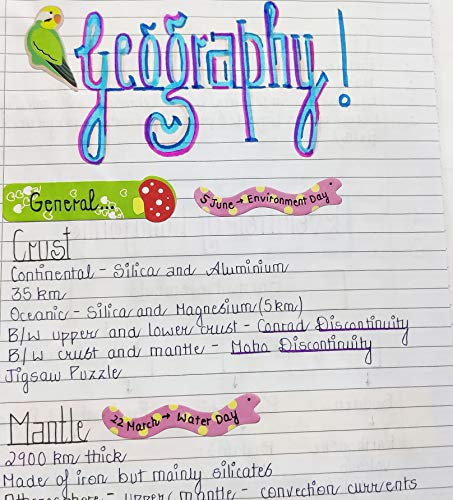 Geography!
General...
5 June → Environment Day
Crust
Continental - Silica and Aluminium
35 km
Oceanic - Silica and Magnesium (5km)
B/W upper and lower crust - Conrad Discontinuity
B/W crust and mantle - Moho Discontinuity
Jigsaw Puzzle
Mantle
22 March → Water Day
2900 km thick
Made of iron but mainly silicates
- upper mantle - convection currents